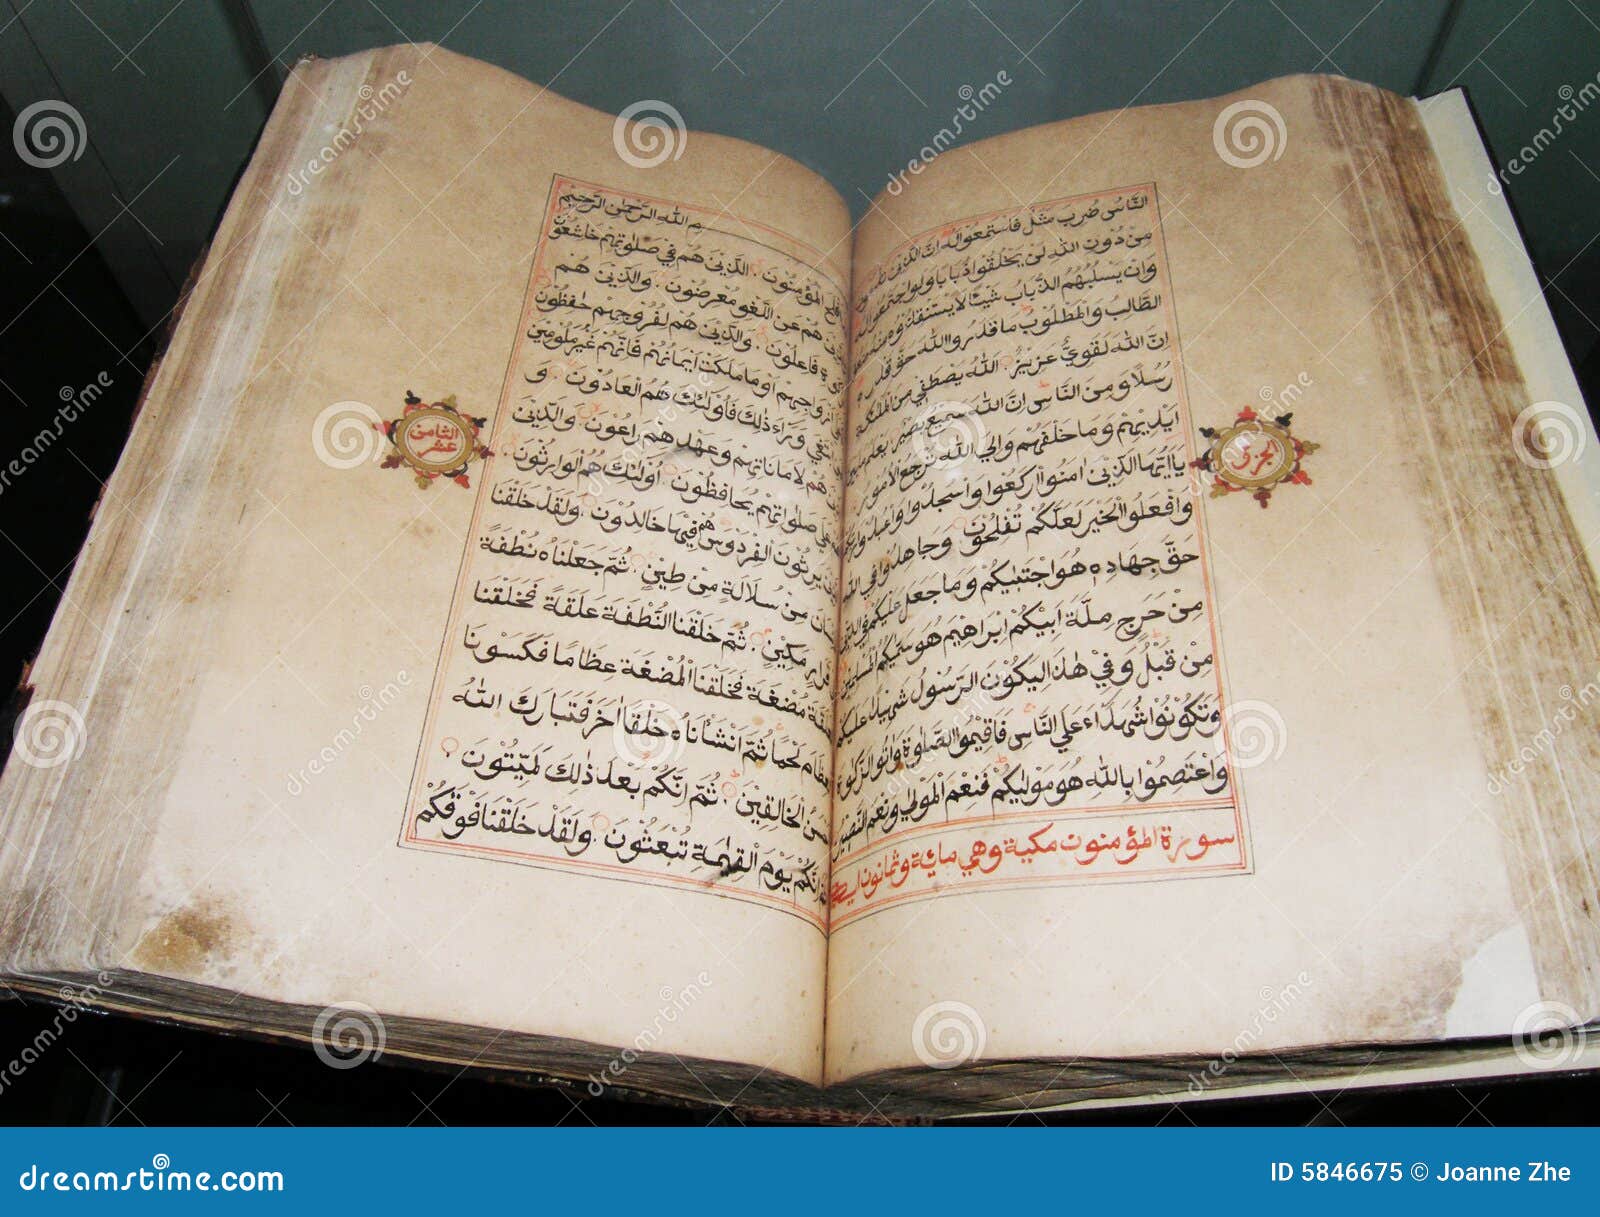 النَّاسُ ضُرِبَ مَثَلٌ فَاسْتَمِعُوا لَهُ اِنَّ الَّذِينَ
مِنْ دُونِ اللَّهِ لَنْ يَخْلُقُوا ذُبَابًا وَلَوِ اجْتَمَعُوا لَهُ
وَاِنْ يَسْلُبْهُمُ الذُّبَابُ شَيْئًا لَا يَسْتَنْقِذُوهُ مِنْهُ ضَعُفَ
الطَّالِبُ وَالْمَطْلُوبُ مَا قَدَرُوا اللَّهَ حَقَّ قَدْرِهِ
اِنَّ اللَّهَ لَقَوِيٌّ عَزِيزٌ اللَّهُ يَصْطَفِي مِنَ الْمَلٰئِكَةِ
رُسُلًا وَمِنَ النَّاسِ اِنَّ اللَّهَ سَمِيعٌ بَصِيرٌ يَعْلَمُ
اَيْدِيْهِمْ وَمَا خَلْفَهُمْ وَاِلَى اللَّهِ تُرْجَعُ الْاُمُورُ
يَااَيُّهَا الَّذِينَ اٰمَنُوا ارْكَعُوا وَاسْجُدُوا وَاعْبُدُوا
وَافْعَلُوا الْخَيْرَ لَعَلَّكُمْ تُفْلِحُونَ وَجَاهِدُوا فِي اللَّهِ
حَقَّ جِهَادِهِ هُوَ اجْتَبٰيكُمْ وَمَا جَعَلَ عَلَيْكُمْ فِي الدِّينِ
مِنْ حَرَجٍ مِلَّةَ اَبِيْكُمْ اِبْرَاهِيمَ هُوَ سَمّٰيكُمُ الْمُسْلِمِينَ
مِنْ قَبْلُ وَفِي هٰذَا لِيَكُوْنَ الرَّسُوْلُ شَهِيدًا عَلَيْكُمْ
وَتَكُوْنُوْا شُهَدَاءَ عَلَى النَّاسِ فَاَقِيمُوا الصَّلٰوةَ وَاٰتُوا الزَّكٰوةَ
وَاعْتَصِمُوْا بِاللَّهِ هُوَ مَوْلٰيكُمْ فَنِعْمَ الْمَوْلٰى وَنِعْمَ النَّصِيرُ
سورة المؤمنون مكية وهي مائة وثمانون
الجزؤ
اللَّهِ الرَّحْمٰنِ الرَّحِيْمِ
الْمُؤْمِنُوْنَ الَّذِيْنَ هُمْ فِيْ صَلٰوتِهِمْ خَاشِعُوْنَ
هُمْ عَنِ اللَّغْوِ مُعْرِضُوْنَ وَالَّذِيْنَ هُمْ
فَاعِلُوْنَ وَالَّذِيْنَ هُمْ لِفُرُوْجِهِمْ حٰفِظُوْنَ
اَزْوَاجِهِمْ اَوْ مَا مَلَكَتْ اَيْمَانُهُمْ فَاِنَّهُمْ غَيْرُ مَلُوْمِيْنَ
وَرَاءَ ذٰلِكَ فَاُوْلٰئِكَ هُمُ الْعَادُوْنَ وَ
هُمْ لِاَمَانَاتِهِمْ وَعَهْدِهِمْ رَاعُوْنَ وَالَّذِيْنَ
صَلَوَاتِهِمْ يُحَافِظُوْنَ اُوْلٰئِكَ هُمُ الْوَارِثُوْنَ
يَرِثُوْنَ الْفِرْدَوْسَ هُمْ فِيْهَا خَالِدُوْنَ وَلَقَدْ خَلَقْنَا
مِنْ سُلَالَةٍ مِنْ طِيْنٍ ثُمَّ جَعَلْنَاهُ نُطْفَةً
مَكِيْنٍ ثُمَّ خَلَقْنَا النُّطْفَةَ عَلَقَةً فَخَلَقْنَا
مُضْغَةً فَخَلَقْنَا الْمُضْغَةَ عِظَامًا فَكَسَوْنَا
لَحْمًا ثُمَّ اَنْشَاْنَاهُ خَلْقًا اٰخَرَ فَتَبَارَكَ اللّٰهُ
الْخَالِقِيْنَ ثُمَّ اِنَّكُمْ بَعْدَ ذٰلِكَ لَمَيِّتُوْنَ
اِنَّكُمْ يَوْمَ الْقِيٰمَةِ تُبْعَثُوْنَ وَلَقَدْ خَلَقْنَا فَوْقَكُمْ
الثامن
عشر
dreamstime.com
ID 5846675 © Joanne Zhe